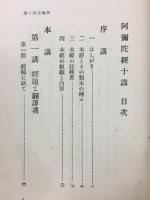 阿彌陀經十講 目次
序講
一 はしがき
二 本經とその類本の種々
三 本經の註釋書
四 本經の組織と内容
本講
第一講 經題と翻譯者
第一節 經題に就て